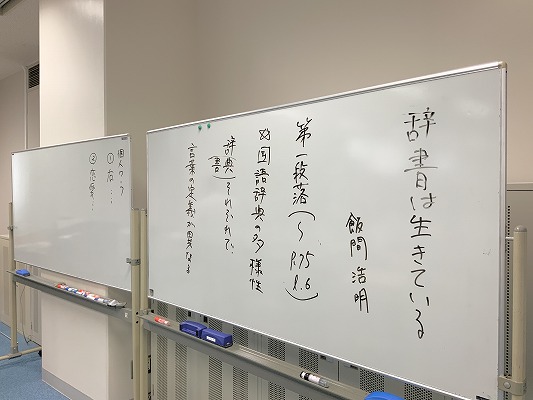 辞書は生きている
飯間 浩明
第一段落(～P.75 l.6)
国語辞典の多様性
辞典(書)それぞれで、
言葉の定義が異なる
個人ワーク
①右…
②恋愛…